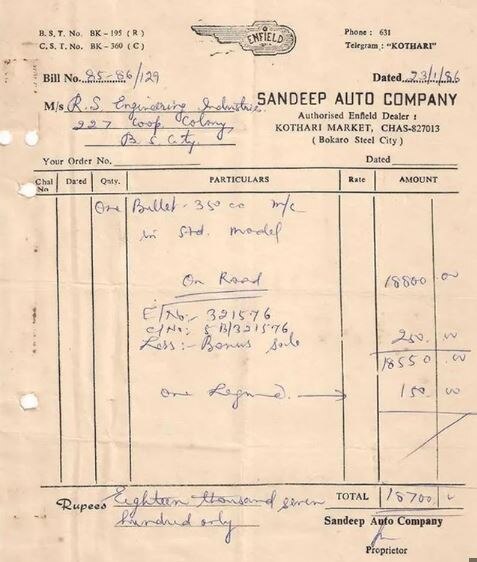 B. S. T. No. BK - 195 ( R )
C. S. T. No. BK - 360 ( C )
ENFIELD
Phone : 631
Telegram : "KOTHARI"
Bill No. 85-86/129
Dated 23/1/86
M/s R.S. Engineering Industries
227 Coop. Colony,
B. S. City.
SANDEEP AUTO COMPANY
Authorised Enfield Dealer :
KOTHARI MARKET, CHAS-827013
( Bokaro Steel City )
Your Order No. Dated
Chal No Dated Qnty. PARTICULARS Rate AMOUNT
One Bullet - 350 cc m/c
in Std. model
On Road 18800 00
E/No:- 321576
C/No:- 5B/321576
Less :- Bonus sale 250 00
18550 00
one Legard. 150 00
TOTAL 18700
Rupees Eighteen thousand seven
hundred only
Sandeep Auto Company
Proprietor